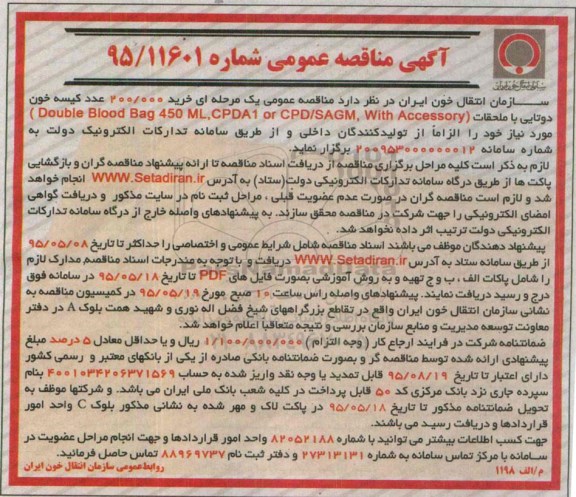 آگهی مناقصه عمومی شماره ۹۵/۱۱۶۰۱
سازمان انتقال خون ایران در نظر دارد مناقصه عمومی یک مرحله ای خرید ۲۰۰/۰۰۰ عدد کیسه خون
دوتایی با ملحقات (Double Blood Bag 450 ML,CPDA1 or CPD/SAGM, With Accessory)
مورد نیاز خود را الزاماً از تولیدکنندگان داخلی و از طریق سامانه تدارکات الکترونیک دولت به
شماره سامانه ۲۰۰۹۵۳۰۰۰۰۰۰۰۱۲ برگزار نماید.
لازم به ذکر است کلیه مراحل برگزاری مناقصه از دریافت اسناد مناقصه تا ارائه پیشنهاد مناقصه گران و بازگشایی
پاکت ها از طریق درگاه سامانه تدارکات الکترونیکی دولت(ستاد) به آدرس WWW.Setadiran.ir انجام خواهد
شد و لازم است مناقصه گران در صورت عدم عضویت قبلی ، مراحل ثبت نام در سایت مذکور و دریافت گواهی
امضای الکترونیکی را جهت شرکت در مناقصه محقق سازند. به پیشنهادهای واصله خارج از درگاه سامانه تدارکات
الکترونیکی دولت ترتیب اثر داده نخواهد شد.
پیشنهاد دهندگان موظف می باشند اسناد مناقصه شامل شرایط عمومی و اختصاصی را حداکثر تا تاریخ ۹۵/۰۵/۰۸
از طریق سامانه ستاد به آدرس WWW.Setadiran.ir دریافت و با توجه به مندرجات اسناد مناقصه مدارک لازم
را شامل پاکات الف ، ب و ج تهیه و به روش آموزشی بصورت فایل های PDF تا تاریخ ۹۵/۰۵/۱۸ در سامانه فوق
درج و رسید دریافت نمایند. پیشنهادهای واصله راس ساعت ۱۰ صبح مورخ ۹۵/۰۵/۱۹ در کمیسیون مناقصه به
نشانی سازمان انتقال خون ایران واقع در تقاطع بزرگراههای شیخ فضل اله نوری و شهید همت بلوک A در دفتر
معاونت توسعه مدیریت و منابع سازمان بررسی و نتیجه متعاقباً اعلام خواهد شد.
ضمانتنامه شرکت در فرایند ارجاع کار ( وجه التزام ) ۱/۱۰۰/۰۰۰/۰۰۰ ریال و یا حداقل معادل ۵ درصد مبلغ
پیشنهادی ارائه شده توسط مناقصه گر و بصورت ضمانتنامه بانکی صادره از یکی از بانکهای معتبر و رسمی کشور
دارای اعتبار تا تاریخ ۹۵/۰۸/۱۹ قابل تمدید یا وجه نقد واریز شده به حساب ۴۰۰۱۰۳۴۲۰۶۳۷۱۵۶۹ بنام
سپرده جاری نزد بانک مرکزی کد ۵۰ قابل پرداخت در کلیه شعب بانک ملی ایران می باشد. و شرکتها موظف به
تحویل ضمانتنامه مذکور تا تاریخ ۹۵/۰۵/۱۸ در پاکت لاک و مهر شده به نشانی مذکور بلوک C واحد امور
قراردادها و دریافت رسید می باشند.
جهت کسب اطلاعات بیشتر می توانید با شماره ۸۲۰۵۲۱۸۸ واحد امور قراردادها و جهت انجام مراحل عضویت در
سامانه با مرکز تماس سامانه به شماره ۲۷۳۱۳۱۳۱ و دفتر ثبت نام ۸۸۹۶۹۷۳۷ تماس حاصل فرمائید.
م/الف ۱۱۹۸ روابط عمومی سازمان انتقال خون ایران